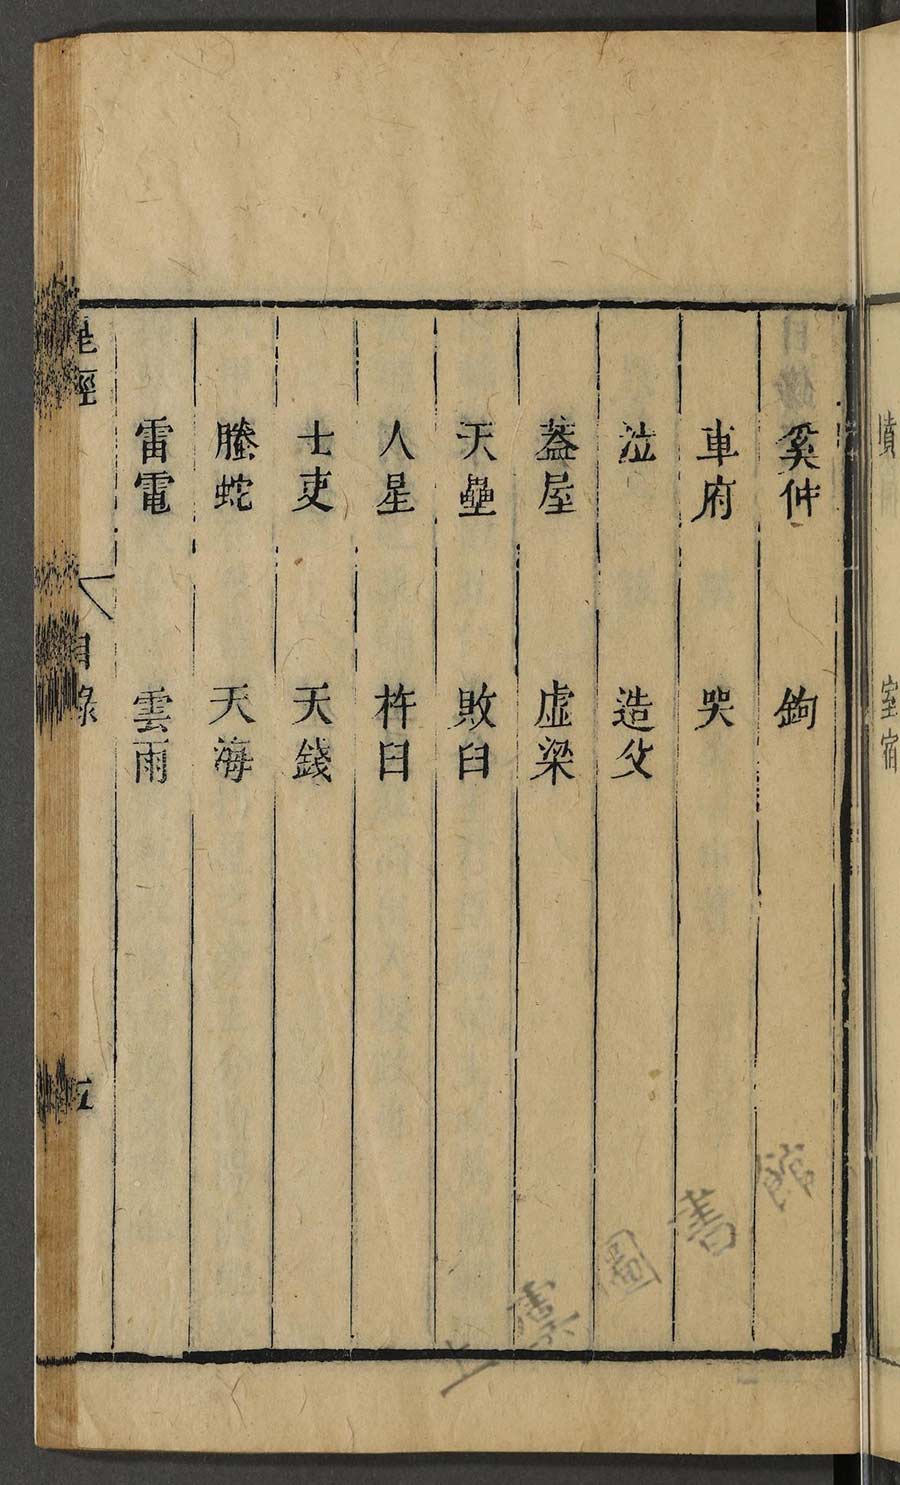 奚仲　鉤
車府　哭
泣　造父
蓋屋　虛梁
天壘　敗臼
人星　杵臼
士吏　天錢
螣蛇　天海
雷電　雲雨
星經　目錄　五
墳
室宿
上虞圖書館